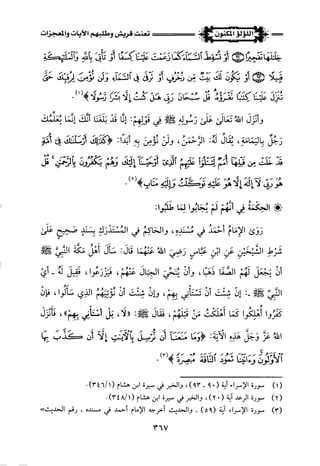 اللؤلؤ المكنون
تعنت قريش وطلبهم الآيات والمعجزات
خِلَٰلَهَا تَفْجِيرًا ۝ أَوْ تُسْقِطَ ٱلسَّمَآءَ كَمَا زَعَمْتَ عَلَيْنَا كِسَفًا أَوْ تَأْتِيَ بِٱللَّهِ وَٱلْمَلَٰٓئِكَةِ
قَبِيلًا ۝ أَوْ يَكُونَ لَكَ بَيْتٌ مِّن زُخْرُفٍ أَوْ تَرْقَىٰ فِي ٱلسَّمَآءِ وَلَن نُّؤْمِنَ لِرُقِيِّكَ حَتَّىٰ
تُنَزِّلَ عَلَيْنَا كِتَٰبًا نَّقْرَؤُهُۥ قُلْ سُبْحَانَ رَبِّي هَلْ كُنتُ إِلَّا بَشَرًا رَّسُولًا﴾(١).
وأَنْزَلَ اللهُ تَعَالَىٰ عَلَىٰ رَسُولِهِ ﷺ فِي قَوْلِهِمْ: إِنَّا قَدْ بَلَغَنَا أَنَّكَ إِنَّمَا يُعَلِّمُكَ
رَجُلٌ بِالْيَمَامَةِ، يُقَالُ لَهُ: الرَّحْمَنُ، ولَنْ نُؤْمِنَ بِهِ أبَدًا: ﴿كَذَٰلِكَ أَرْسَلْنَٰكَ فِيٓ أُمَّةٍ
قَدْ خَلَتْ مِن قَبْلِهَآ أُمَمٌ لِّتَتْلُوَا۟ عَلَيْهِمُ ٱلَّذِيٓ أَوْحَيْنَآ إِلَيْكَ وَهُمْ يَكْفُرُونَ بِٱلرَّحْمَٰنِ قُلْ
هُوَ رَبِّي لَآ إِلَٰهَ إِلَّا هُوَ عَلَيْهِ تَوَكَّلْتُ وَإِلَيْهِ مَتَابِ﴾(٢).
الحِكْمَةُ فِي أَنَّهُمْ لَمْ يُجَابُوا لِمَا طَلَبُوا:
رَوَىٰ الإِمَامُ أَحْمَدُ فِي مُسْنَدِهِ، والحَاكِمُ فِي المُسْتَدْرَكِ بِسَنَدٍ صَحِيحٍ عَلَىٰ
شَرْطِ الشَّيْخَيْنِ عَنِ ابْنِ عَبَّاسٍ رَضِيَ اللهُ عَنْهُمَا قَالَ: سَأَلَ أَهْلُ مَكَّةَ النَّبِيَّ ﷺ
أَنْ يَجْعَلَ لَهُمُ الصَّفَا ذَهَبًا، وأَنْ يُنَحِّيَ الجِبَالَ عَنْهُمْ، فَيَزْدَرِعُوا، فَقِيلَ لَهُ ـ أيْ
النَّبِيُّ ﷺ ـ: إِنْ شِئْتَ أَنْ تَسْتَأْنِيَ بِهِمْ، وإِنْ شِئْتَ أَنْ نُؤْتِيَهُمُ الذِي سَأَلُوا، فَإِنْ
كَفَرُوا أُهْلِكُوا كَمَا أَهْلَكْتُ مَنْ قَبْلَهُمْ، فَقَالَ ﷺ: «لَا، بَلْ أَسْتَأْنِي بِهِمْ»، فَأَنْزَلَ
اللهُ عَزَّ وَجَلَّ هَذِهِ الآيَةَ: ﴿وَمَا مَنَعَنَآ أَن نُّرْسِلَ بِٱلْءَايَٰتِ إِلَّآ أَن كَذَّبَ بِهَا
ٱلْأَوَّلُونَ وَءَاتَيْنَا ثَمُودَ ٱلنَّاقَةَ مُبْصِرَةً﴾(٣).
(١) سورة الإسراء آية (٩٠ ـ ٩٣)، والخبر في سيرة ابن هشام (٣٤٦/١).
(٢) سورة الرعد آية (٢٠)، والخبر في سيرة ابن هشام (٣٤٨/١).
(٣) سورة الإسراء آية (٥٩) ـ والحديث أخرجه الإمام أحمد في مسنده ـ رقم الحديث=
٣٦٧